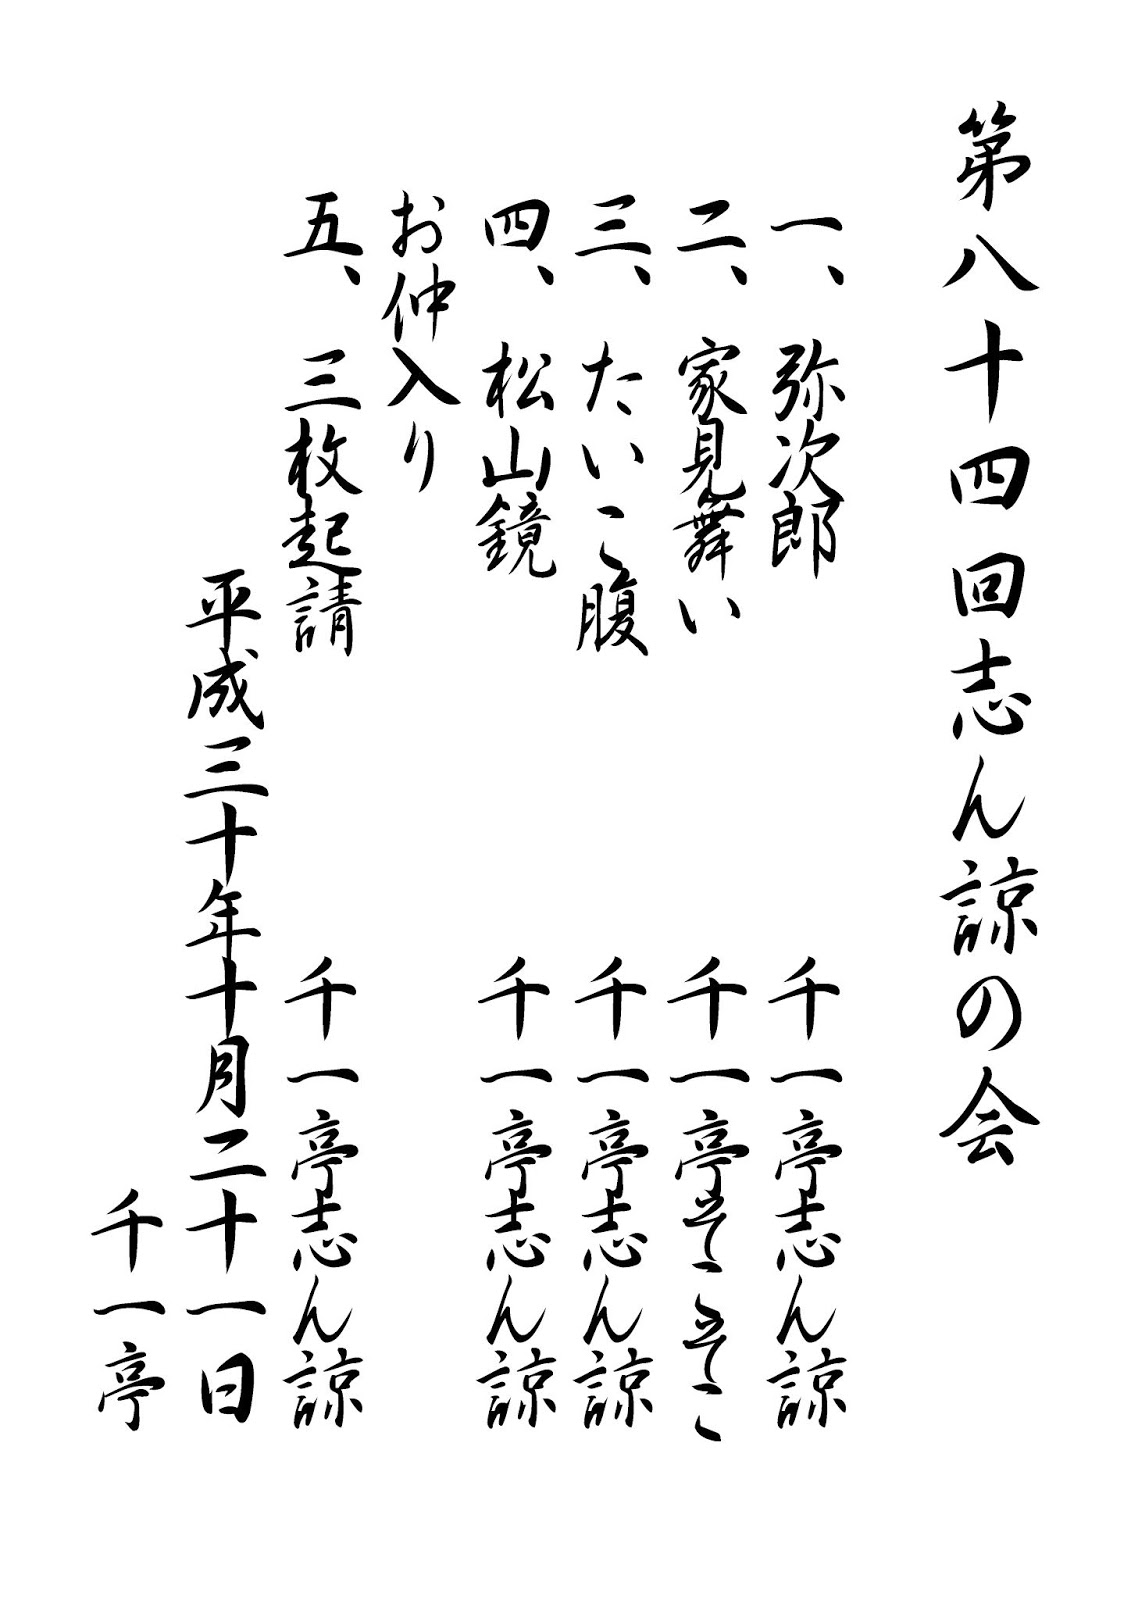 第八十四回志ん諒の会
一、弥次郎 千一亭志ん諒
二、家見舞い 千一亭そこそこ
三、たいこ腹 千一亭志ん諒
四、松山鏡 千一亭志ん諒
お仲入り
五、三枚起請 千一亭志ん諒
平成三十年十月二十一日
千一亭